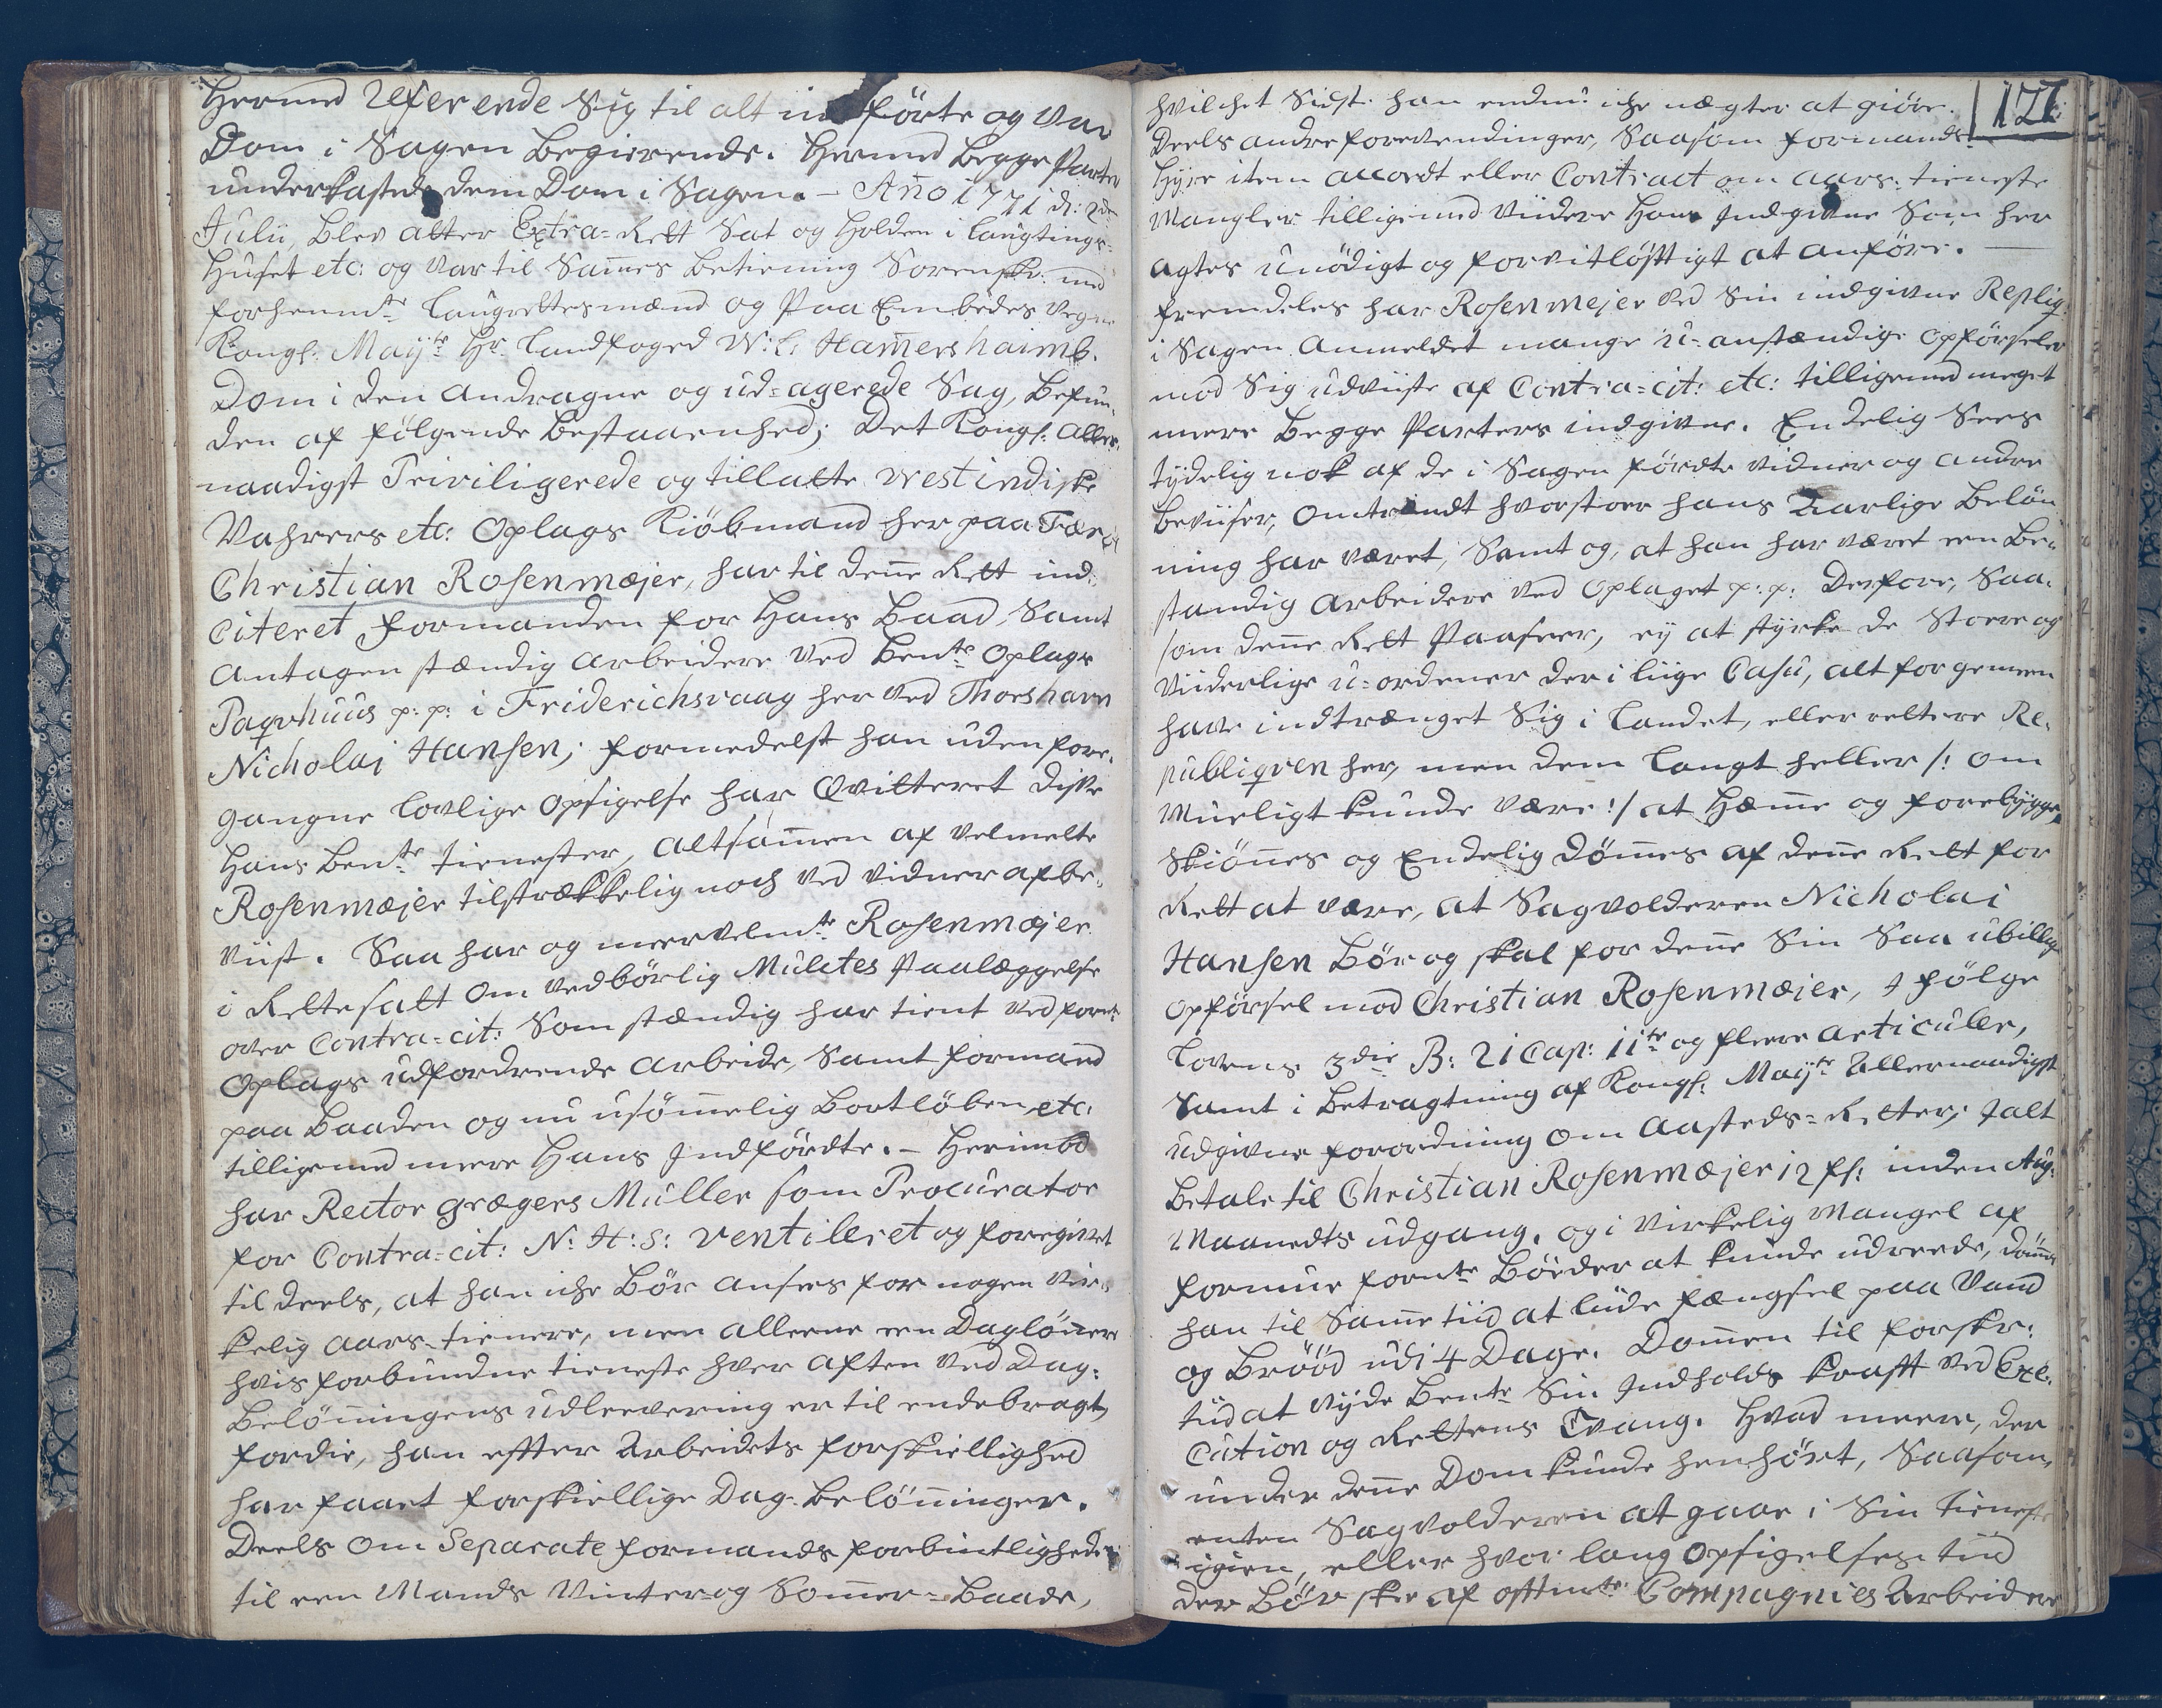 Hermed Referende Sig til alt indførte og var
Dom i Sagen Begierende. Hermed Begge Parter
underkastede dem Dom i Sagen. - Año 1771 d: 2de
Julii, blev atter Extra-Rett Sat og Holden i Laugtings-
Huset etc: og var til Sam̃es betiening Sorenskr: med
forhennte Laugrettesmænd og paa Embedes vegne
Kongl: Mayts Hr Landfoged W: L: Ham̃ershaimb.
Dom i den Andragne og ud-agerede Sag, befun-
den af følgende bestaaenhed; Det Kongl: Aller-
naadigst Priviligerede og tilladte Westindiske
Vahrers etc: Oplags Kiöbmand her paa Færöe
Christian Rosenmæjer, har til deñe Rett ind-
Citeret formanden for Hans Baad, Samt
antagen stændig Arbeidere ved bente Oplags
Paqvhuus p: p: i Friderichsvaag her ved Thorshavn
Nicholai Hansen; formedelst han uden fore-
gangne Lovlige Opsigelse har Qvitteret disse
Hans bente tienester, altsam̃en af velmelte
Rosenmæjer tilstrækkelig noch ved vidner afbe-
viist. Saa har og meervelmte Rosenmæjer
i Rettesatt om vedbörlig Mulctes Paalæggelse
over Contra-cit: Som stændig har tient ved forn:
Oplags udfordrende Arbeide, Samt formand
paa Baaden og nu usöm̃elig bortløben etc:
tilligemed meere Hans Indførdte. - Herimod
har Rector Grægers Müller som Procurator
for Contra-cit: N: H: S: ventileret og foregivet
til deels, at han iche Bör ansees for nogen vir-
kelig Aars-tienere, men alleene een Daglönere
hvis forbundne tieneste hver aften ved Dag-
Belöñingens udleevering er til endebragt,
fordie, han efter Arbeidets forskiellighed
har faaet forskiellige Dag-Belöñinger.
Deels om Separate formands forbintligheder
til een Mands Vinter- og Som̃er-Baade,
171.
hvilchet Sidst. han endnu iche nægter at giöre.
Deels andre forevendinger, Saasom formands-
Hyre item accordt eller Contract om Aars-tieneste
Mangler tilligemed viidere Hans Indgivne Som her
agtes unödigt og forvitløfttigt at anføre.
fremdeles har Rosenmejer ved Sin indgivne Repliq
i Sagen Anmeldet mange u-anstændige opførseler
mod Sig udviiste af Contra-cit: etc: tilligemed meget
meere Begge Parters indgivne. Endelig Sees
tydelig nok af de i Sagen førdte vidner og andre
beviiser, Omtrendt hvorstoer hans Aarlige Belön
ning har været, Samt og, at han har været een be-
standig Arbeidere ved Oplaget p: p: Derfore, Saa-
som deñe Rett Paaseer, ey at styrke de Store og
viiderlige u-ordener der i liige Casu, alt for gemeen
have indtrænget Sig i Landet, eller rettere Re-
publiqven her, men dem Langt heller /: om
Mueligt kunde være :/ at Hæm̃e og forebygge
Skiöñes og Endelig Döm̃es af deñe Rett for
Rett at være, at Sagvolderen Nicholai
Hansen Bör og skal for deñe Sin Saa ubillige
opförsel mod Christian Rosenmæjer, I følge
Lovens 3die B: 21 Cap: 11te og fleere Articuler,
Samt i betragtning af Kongl: Mayts Allernaadigst
udgivne forordning om Aasteds-Retter; Ialt
betale til Christian Rosenmæjer 12 ℔: inden Aug:
Maanedts udgang, og i virkelig Mangel af
formue fornte Böeder at kunde udreede, döm̃es
han til Sam̃e tiid at liide fængsel paa Vand
og Bröød udi 4 Dage. Dom̃en til forskr:
tiid at nyde bente Sin Indholds krafft ved Exe-
cution og Rettens Tvang. Hvad meere, der
under deñe Dom kunde henhört, Saasom,
enten Sagvolderen at gaae i Sin tieneste
igien, eller hvor lang Opsigelses tiid
der Bör skee af offtmte Compagnies Arbeidere